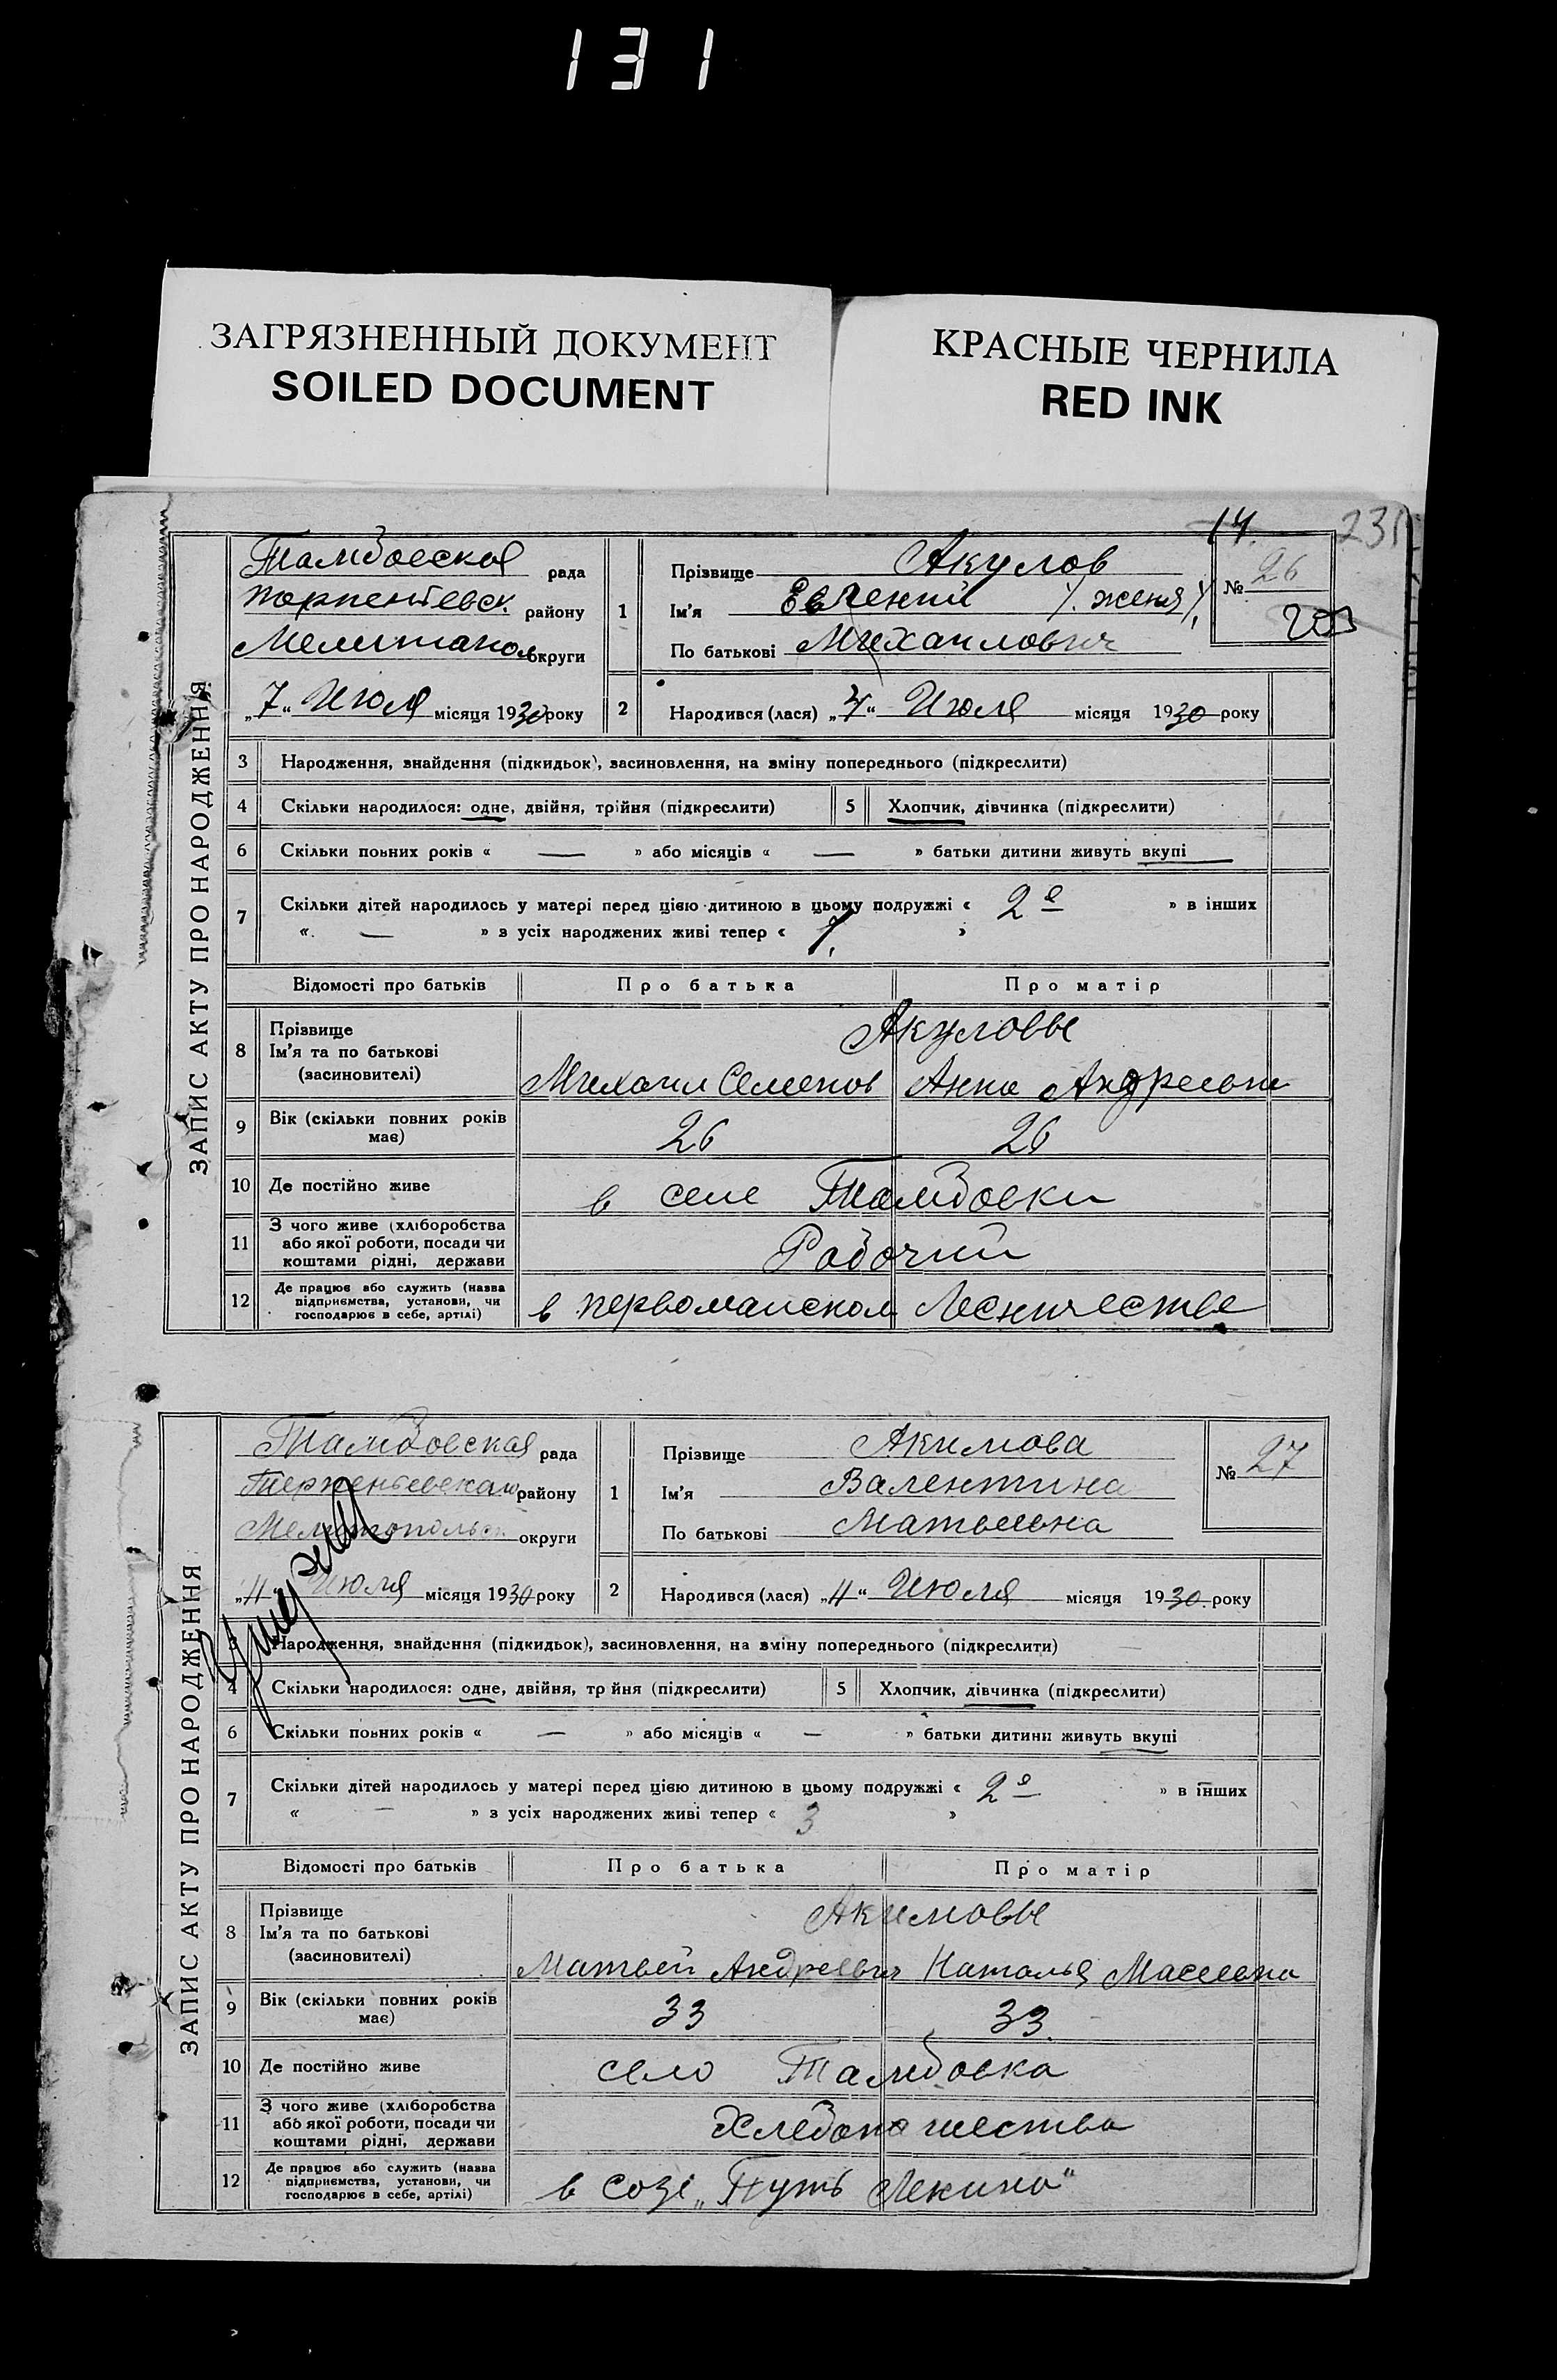 131
ЗАГРЯЗНЕННЫЙ ДОКУМЕНТ
SOILED DOCUMENT
КРАСНЫЕ ЧЕРНИЛА
RED INK
14.
231
ЗАПИС АКТУ ПРО НАРОДЖЕННЯ
Тамбовская рада
району
Мелитопол округи
„7“ Июля місяця 1930 року
1 Прізвище Акулов
Ім’я Евгений /. женя/.
По батькові Михаилович
№ 26
20
2 Народився (лася) „4“ Июля місяця 1930 року
3 Народження, знайдення (підкидьок), васиновлення, на зміну попереднього (підкреслити)
4 Скільки народилося: одне, двійня, трійня (підкреслити) 5 Хлопчик, дівчинка (підкреслити)
6 Скільки повних років « — » або місяців « — » батьки дитини живуть вкупі
7 Скільки дітей народилось у матері перед цією дитиною в цьому подружжі « 2е » в інших
« — » з усіх народжених живі тепер « 1. »
Відомості про батьків Про батька Про матір
8 Прізвище
Ім’я та по батькові
(засиновителі)
Акуловы
Михаил Семенов Анна Андреевн
9 Вік (скільки повних років має) 26 26
10 Де постійно живе в селе Тамбовки
11 З чого живе (хліборобства
або якої роботи, посади чи
коштами рідні, держави
Рабочий
12 Де працює або служить (назва
підприємства, установи, чи
господарює в себе, артілі)
в первомаиском Лесничестве
ЗАПИС АКТУ ПРО НАРОДЖЕННЯ
Тамбовская рада
району
Мелитопольск округи
„11“ Июля місяця 1930 року
1 Прізвище Акимова
Ім’я Валентина
По батькові Матвевна
№ 27
2 Народився (лася) „11“ Июля місяця 1930 року
3 Народження, знайдення (підкидьок), засиновлення, на зміну попереднього (підкреслити)
4 Скільки народилося: одне, двійня, трійня (підкреслити) 5 Хлопчик, дівчинка (підкреслити)
6 Скільки повних років « — » або місяців « — » батьки дитини живуть вкупі
7 Скільки дітей народилось у матері перед цією дитиною в цьому подружжі « 2е » в інших
« — » з усіх народжених живі тепер « 3 »
Відомості про батьків Про батька Про матір
8 Прізвище
Ім’я та по батькові
(засиновителі)
Акимовы
Матвей Андреевич Наталья
9 Вік (скільки повних років має) 33 33.
10 Де постійно живе село Тамбовка
11 З чого живе (хліборобства
або якої роботи, посади чи
коштами рідні, держави
12 Де працює або служить (назва
підприємства, установи, чи
господарює в себе, артілі)
в созі „Путь Ленина“